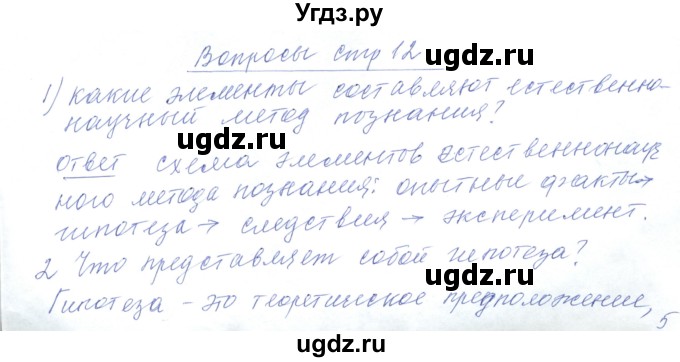 Угдз.ру
Вопросы стр 12
ugdz.ru
ugdz.ru
1) какие элементы составляют естественно-
научный метод познания?
ugdz.ru
ответ схема элементов естественнонауч
ugdz.ru
ного метода познания: опытные факты→
гипотеза → следствия → эксперимент.
ugdz.ru
2 Что представляет собой гипотеза?
ugdz.ru
Гипотеза - это теоретическое предположение,
ugdz.ru
5